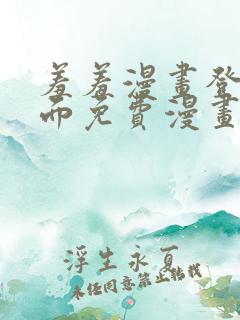 羞羞漫畫登
而免費漫畫
浮生永夏
未经同意禁止转载